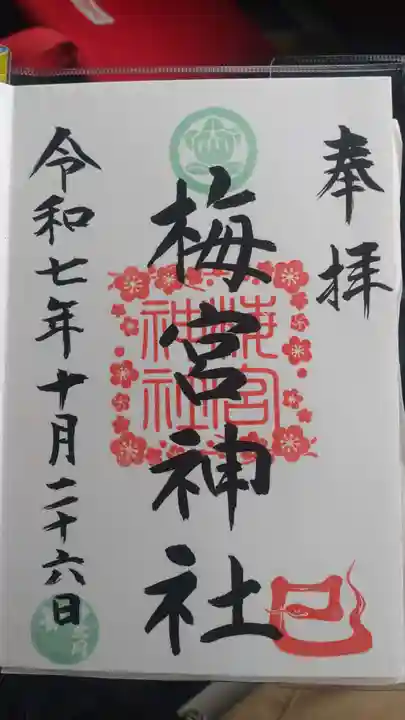 奉拝
梅宮神社
梅宮
神社
巳
令和七年十月二十六日